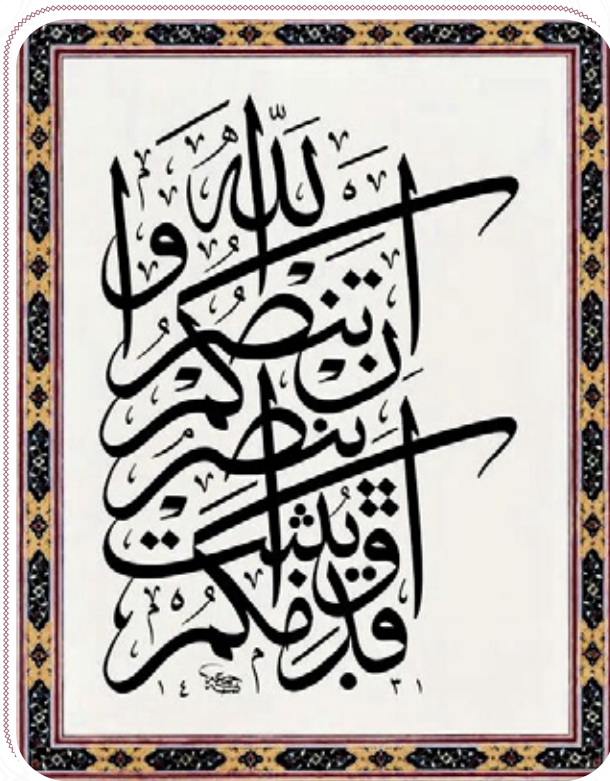 ان تنصروا الله
ينصركم
ويثبت اقدامكم
١٤ م ٣١